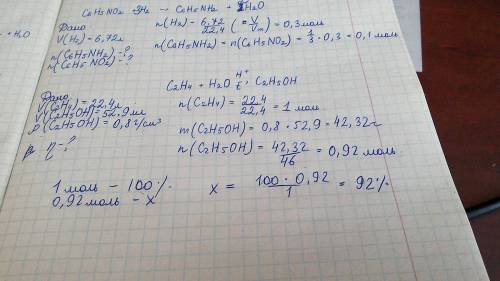 C6H5NO2 + 3H2 → C6H5NH2 + 2H2O
+ H2O
Дано
V(H2) = 6,72л
n(C6H5NH2) - ?
n(C6H5NO2) - ?
n(H2) - 6,72/22,4 (= V/Vm) = 0,3 моль
n(C6H5NH2) = n(C6H5NO2) = 1/3 · 0,3 = 0,1 моль
C2H4 + H2O H+ t, C2H5OH
Дано
V(C2H4) = 22,4л
V(C2H5OH) = 52,9 мл
ρ(C2H5OH) = 0,8 г/см³
η - ?
n(C2H4) = 22,4/22,4 = 1 моль
m(C2H5OH) = 0,8 · 52,9 = 42,32г
n(C2H5OH) = 42,32/46 = 0,92 моль
1 моль - 100%
0,92 моль - x
x = 100 · 0,92/1 = 92%